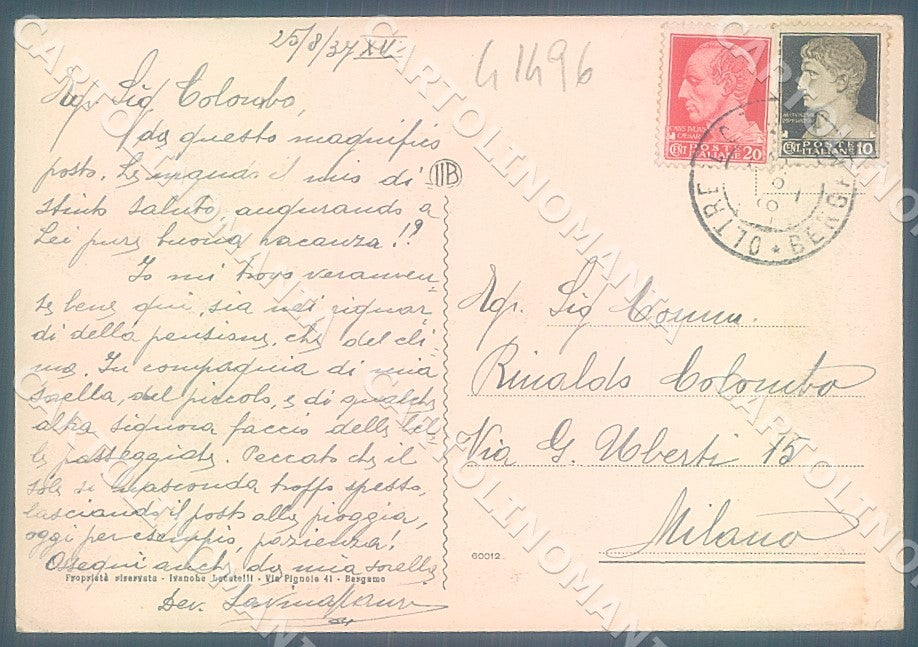 25/8/37 XV
41496
Egr. Sig Colombo,
da questo magnifico
posto, Le mando il mio di
stinto saluto, augurando a
Lei pure buona vacanza!!
Io mi trovo veramen-
te bene qui, sia nei riguar
di della pensione, che del cli
ma. In compagnia di mia
sorella, del piccolo, e di qualche
altra signora faccio delle bel
le passeggiate. Peccato che il
sole si nasconda troppo spesso,
lasciando il posto alla pioggia,
oggi per esempio, pazienza!
Ossequi anche da mia sorella
Dev.
Proprietà riservata - Ivanohe Locatelli - Via Pignolo 41 - Bergamo
IIB
60012
CENT POSTE ITALIANE 20
CENT POSTE ITALIANE 10
OLTRE
BERGAMO
Egr. Sig Comm.
Rinaldo Colombo
Via G. Uberti 15
Milano
CARTOLINOMANIA